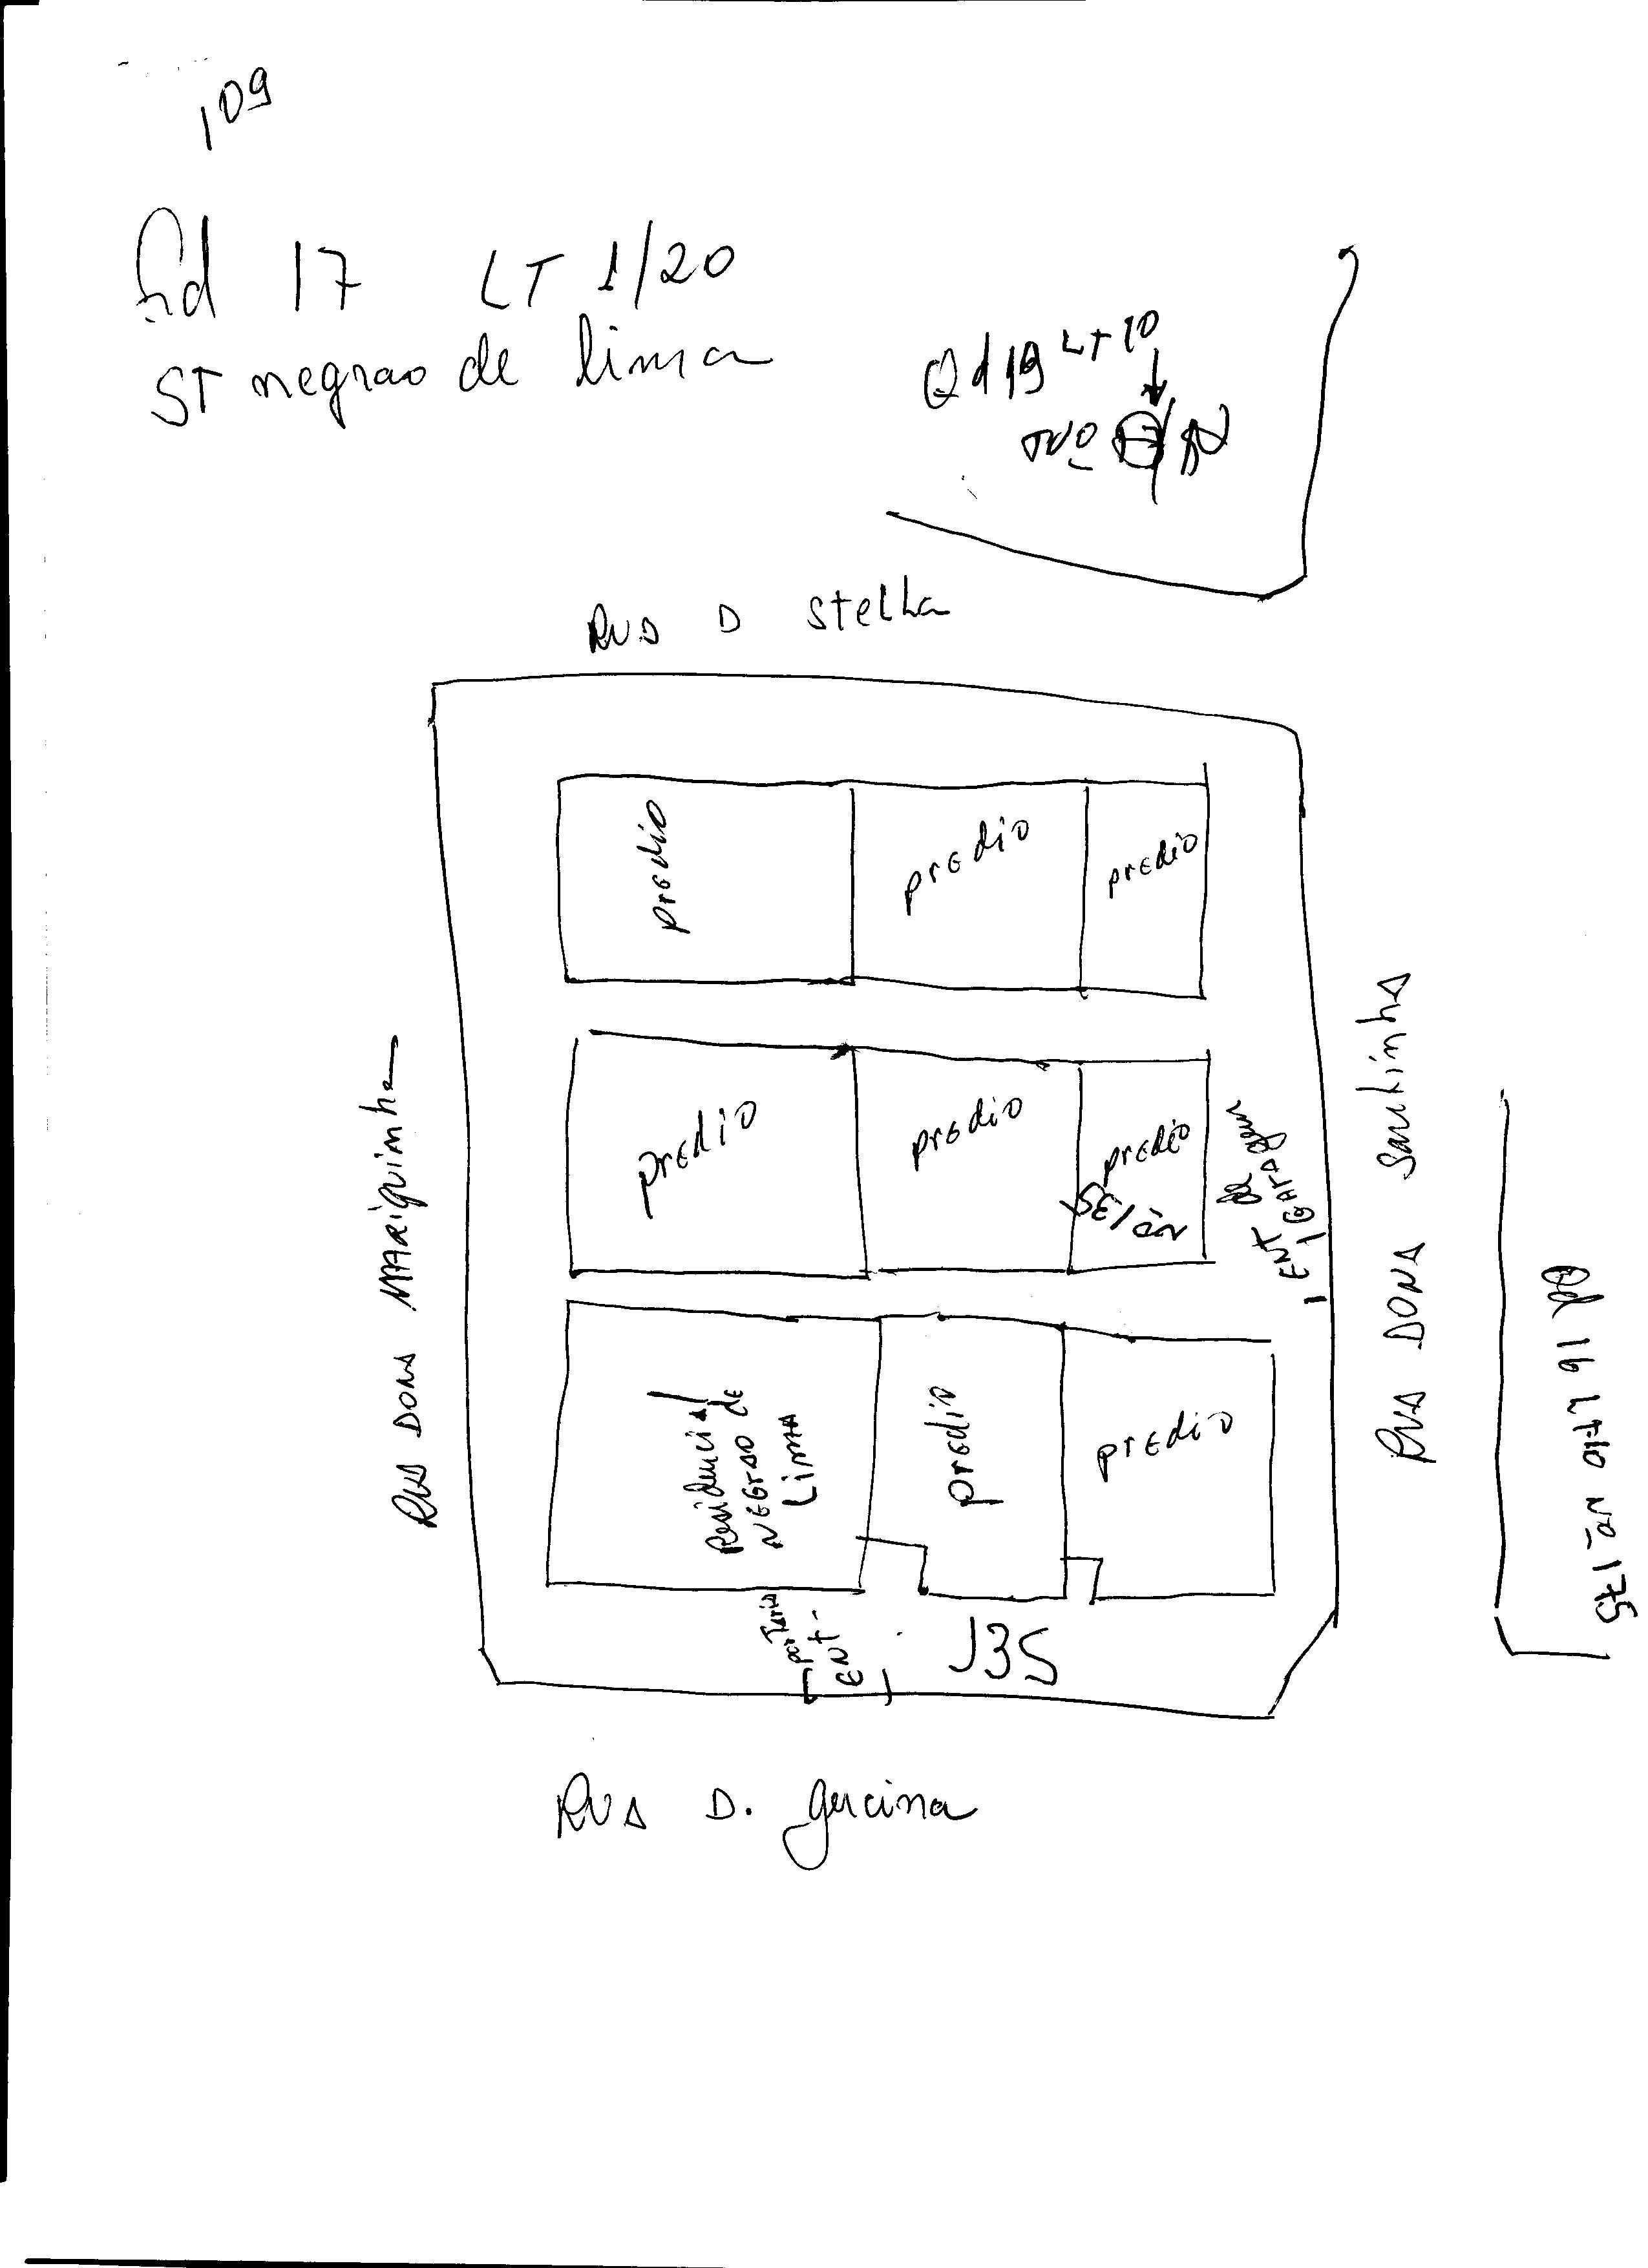 109
Qd 17 LT 1/20
ST negrao de lima
Qd 19 LT 10
Nº
RUA D Stella
predio
predio
predio
RUA DONA MARIquinha
predio
predio
predio
Nº 135
ENT de
GARAgem
RUA DONA Santinha
Qd 16 LT 10 Nº 175
Residencial
NEGRAO de
LimA
predio
predio
porTaria
ENT-
135
RUA D. gercina